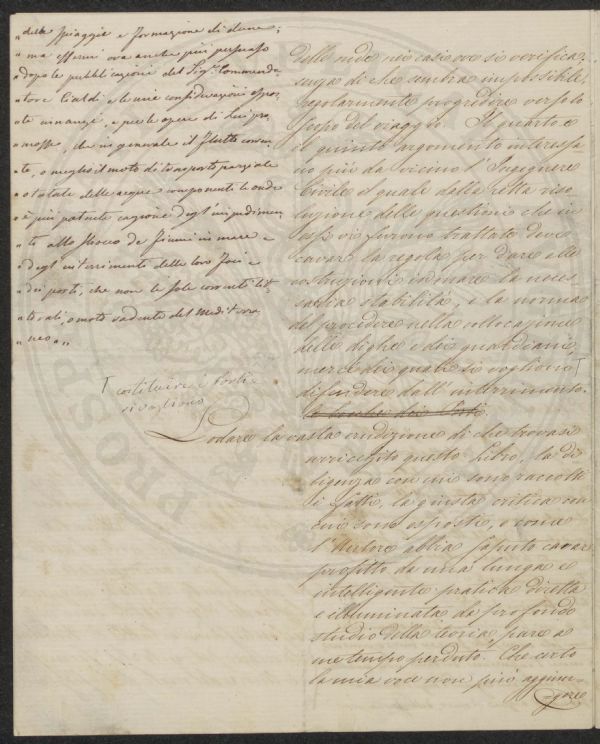 „ delle spiaggie e formazione di dune;
„ ma essermi ora anche più persuaso
„ dopo le pubblicazione del Sigr. Commenda
„ tore Cialdi e le mie considerazioni espo
„ ste innanzi, e per le opere di lui pro
„ mosse, che in generale il flutto corren
„ te, o meglio il moto di trasporto parziale
„ o totale delle acque componenti le onde
„ è più potente cagione degl'impedimen
„ ti allo sbocco de fiumi in mare e
„ degl'interrimenti delle loro foci e
„ dei porti, che non le sole correnti lit
„ torali, o moto radente del Mediterra
„ neo „
T costituire i Porti
si vogliono
delle onde nei casi ove si verifica,
senza di che sembra impossibile
regolarmente progredire verso lo
scopo del viaggio. Il quarto e
il quinto argomento interessa
no più da vicino l'Ingegnere
Civile il quale dalla retta riso
luzione delle questioni che in
essi vi furono trattate deve
cavare la regola per dare alle
costruzioni in mare la neces
saria stabilità, e la norma
del procedere nella collocazione
delle dighe e dei guardiani,
mercè dei quali si vogliono T
difendere dall'interrimento.
Lodare la vasta erudizione di che trovasi
arricchito questo libro, la di
ligenza con cui sono raccolti
i fatti, la giusta critica con
cui sono esposti, e come
l'Autore abbia saputo cavar
profitto da una lunga e
intelligente pratica diretta
e illuminata da profondo
studio della teoria, pare a
me tempo perduto. Che certo
la mia voce non può aggiun-
gere